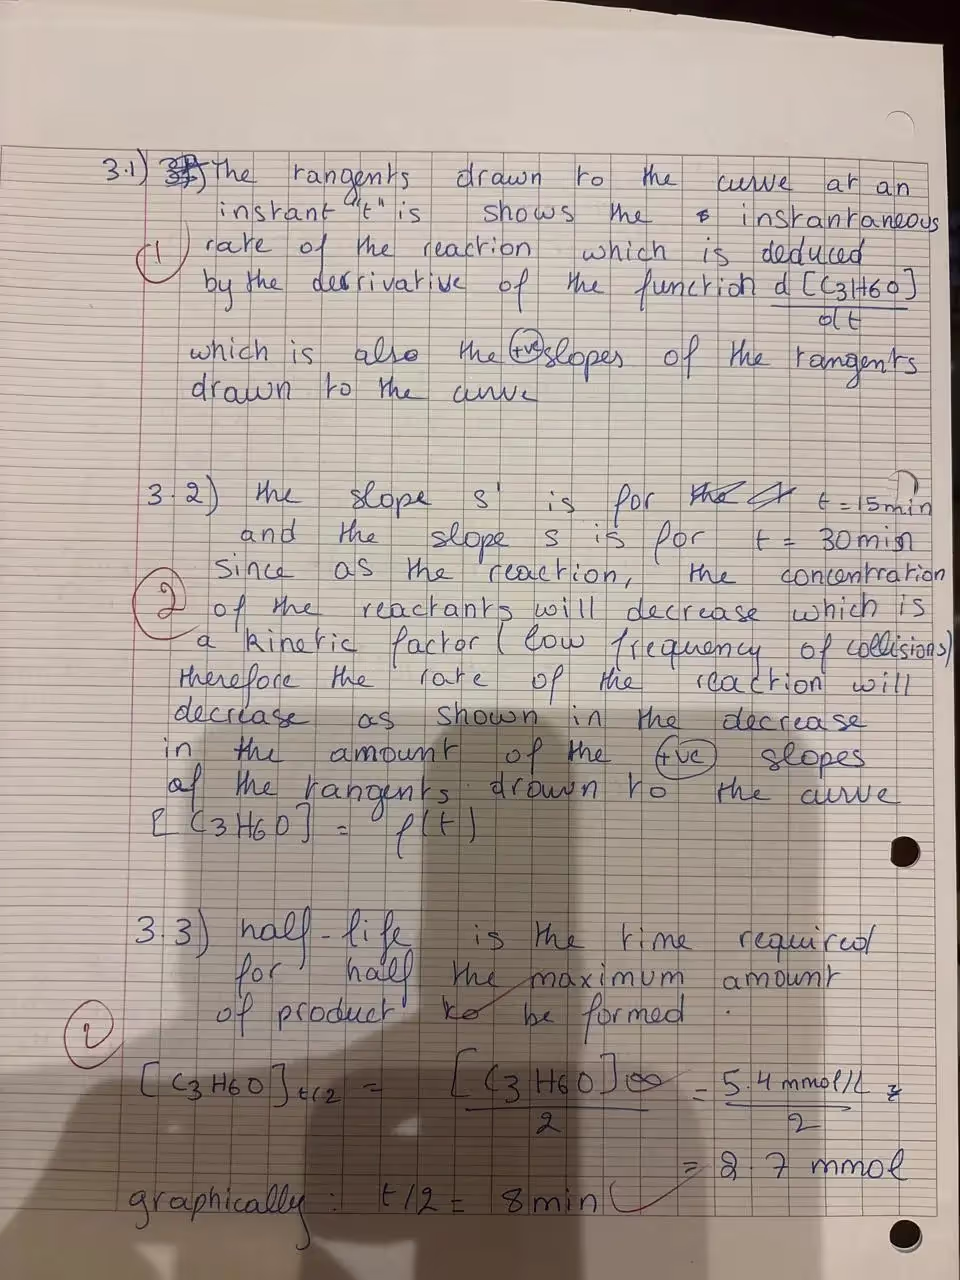 3.1) The tangents drawn to the curve at an
instant "t" is shows the instantaneous
1
rate of the reaction which is deduced
by the derrivative of the function d[C3H6O]
dt
which is also the +ve slopes of the tangents
drawn to the curve
3.2) the slope s' is for t = 15min
and the slope s is for t = 30min
since as the reaction, the concentration
2
of the reactants will decrease which is
a kinetic factor (low frequency of collisions)
therefore the rate of the reaction will
decrease as shown in the decrease
in the amount of the +ve slopes
of the tangents drawn to the curve
[C3H6O] = f(t)
3.3) half-life is the time required
for half the maximum amount
of product to be formed.
[C3H6O]t/2 = [C3H6O]∞ = 5.4 mmol/L
2 2
= 2.7 mmol
graphically: t/2 = 8min